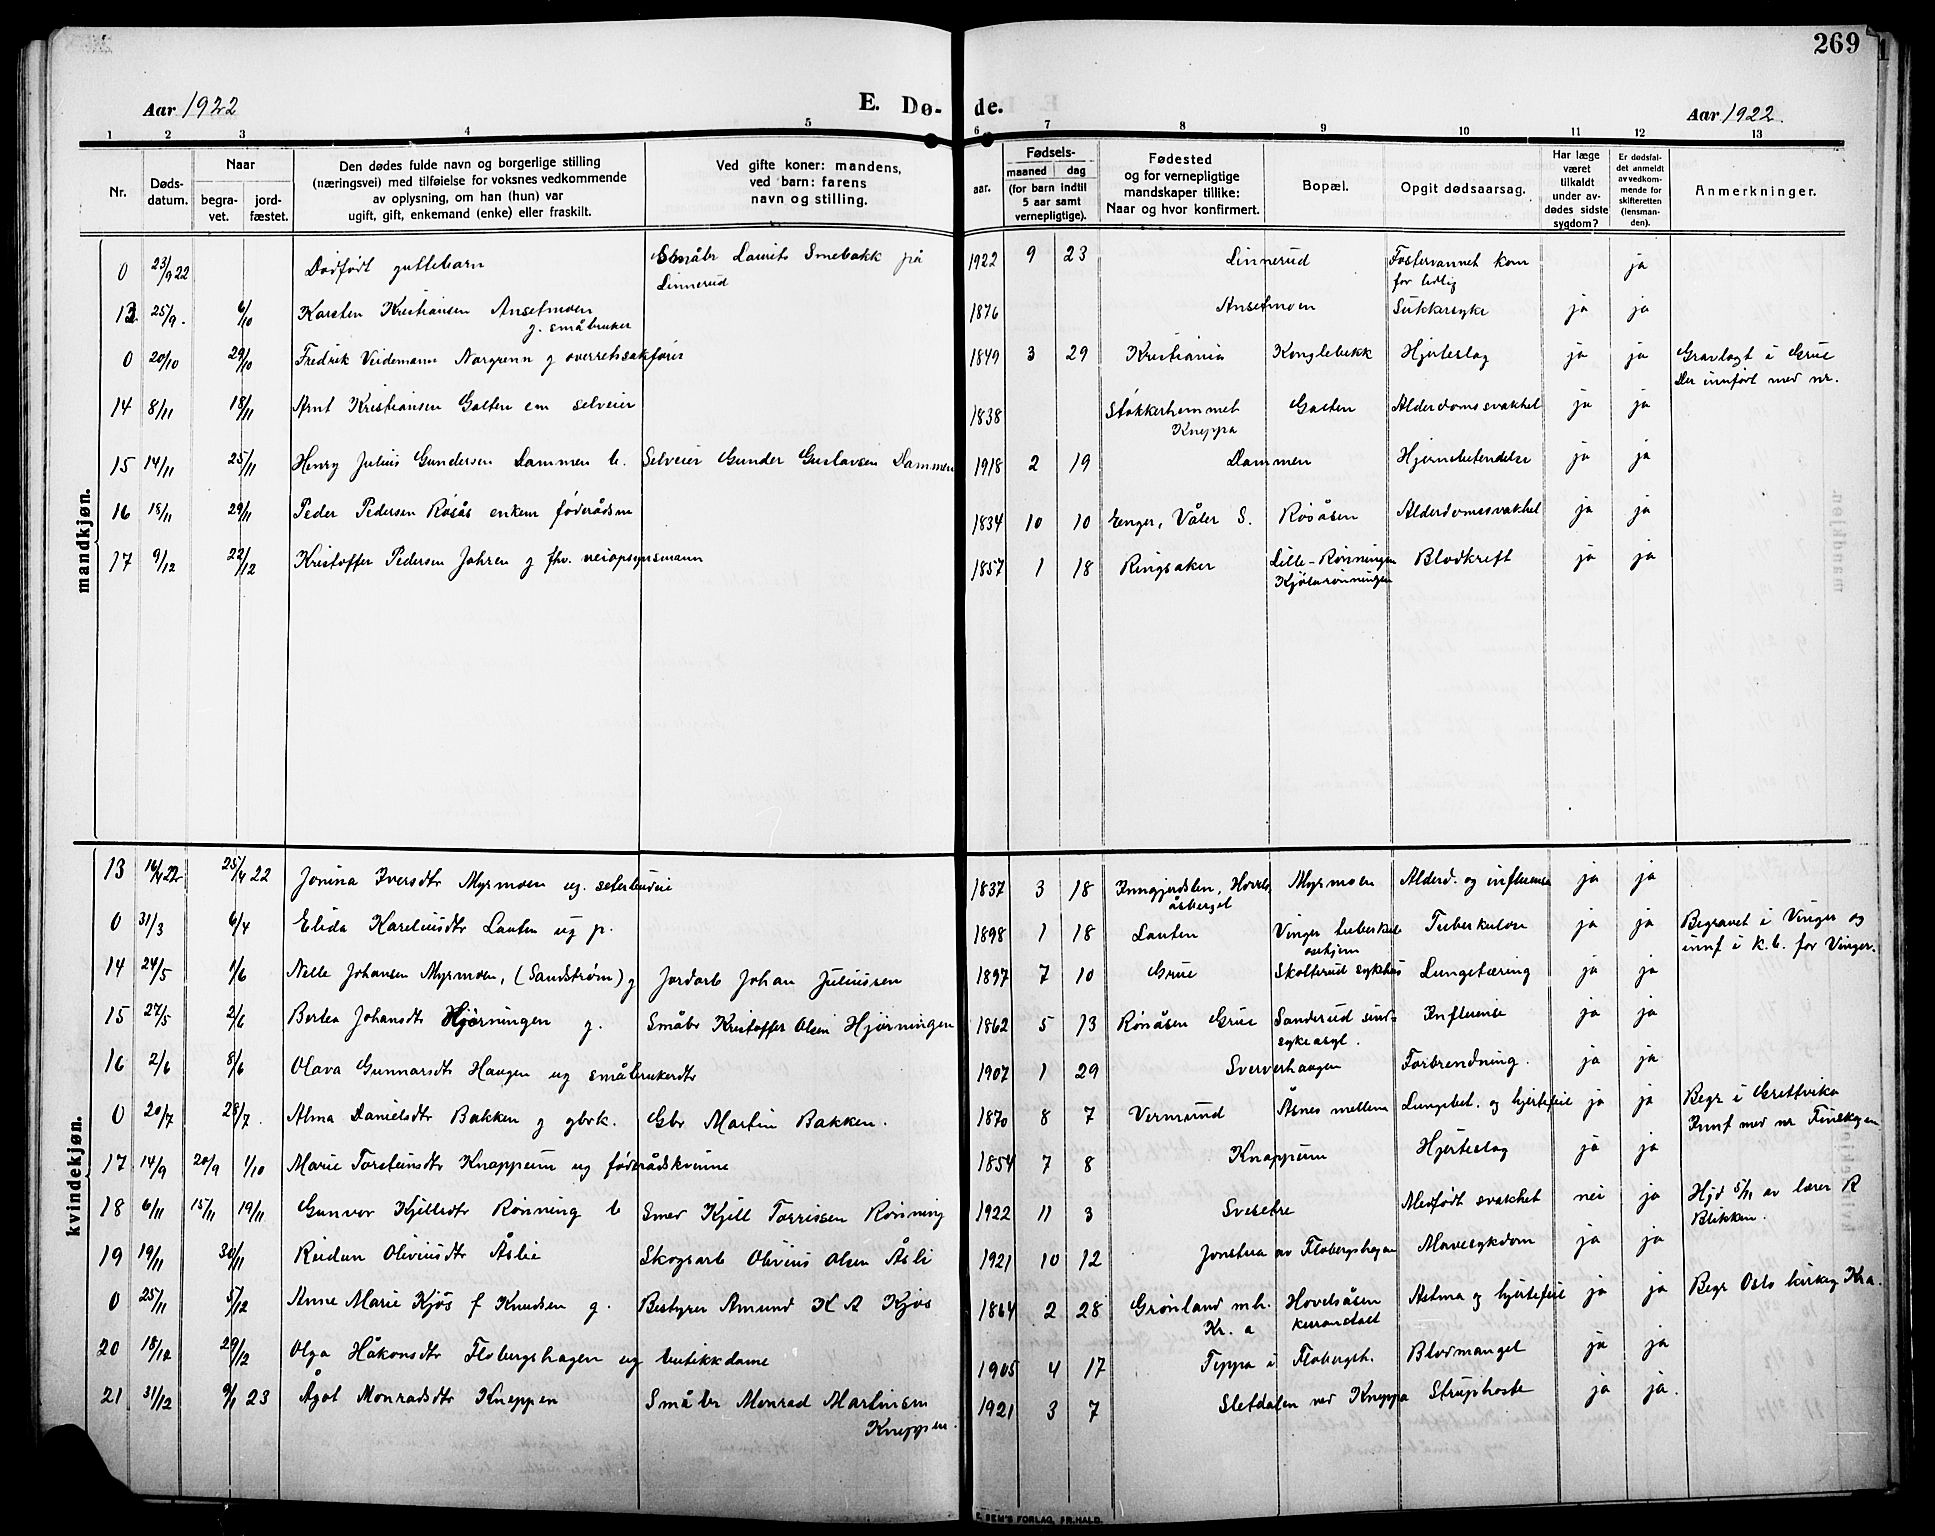 269
Aar 1922
E. Dø-de.
Aar 1922.
1 2 3 4 5 6 7 8 9 10 11 12 13
Nr.
Døds-
datum.
Naar
begra-
vet.
jord-
fæstet.
Den dødes fulde navn og borgerlige stilling
(næringsvei) med tilføielse for voksnes vedkommende
av oplysning, om han (hun) var
ugift, gift, enkemand (enke) eller fraskilt.
Ved gifte koner: mandens,
ved barn: farens
navn og stilling.
Fødsels-
aar.
maaned dag
(for barn indtil
5 aar samt
vernepligtige).
Fødested
og for vernepligtige
mandskaper tillike:
Naar og hvor konfirmert.
Bopæl.
Opgit dødsaarsag.
Har læge
været
tilkaldt
under av-
dødes sidste
sygdom?
Er dødsfal-
det anmeldt
av vedkom-
mende for
skifteretten
(lensman-
den).
Anmerkninger.
mandkjøn.
0 23/9 22 Dødfødt guttebarn Småbr Laurits Smebakk på 1922 9 23 Linnerud Fostervannet kom ja
Linnerud for tidlig
13 25/9. 6/10 Karsten Kristiansen Ansetmoen 1876 Ansetmoen Sukkersyke ja ja
g. småbruker
0 20/10 29/10 Fredrik Veidemann Norgrenn g overretssakfører 1849 3 29 Kristiania Konglebekk Hjerteslag ja ja Gravlagt i Grue
Der innført med nr.
14 8/11 18/11 Arnt Kristiansen Galten em selveier 1838 Stokkerhemmet Galten Alderdomssvakhet ja ja
Kneppa
15 14/11 25/11 Henry Julius Gundersen Dammen b. Selveier Gunder Gustavsen Dammen 1918 2 19 Dammen Hjernebetendelse ja ja
16 18/11 29/11 Peder Pedersen Røsås enkem føderådsm 1834 10 10 Enger, Våler S. Røsåsen Alderdomssvakhet ja ja
17 9/12 22/12 Kristoffer Pedersen Johren g fhv. veiopsynsmann 1857 1 18 Ringsaker Lille-Rønningen Blodkreft ja ja
Kjølarønningen
kvindekjøn.
13 16/4 22 25/4 22 Jonina Iversdtr Myrmoen ug. 1837 3 18 Myrmoen Alderd. og influensa ja ja
åsberget
0 31/3 6/4 Elida Kareliusdtr Lauten ug p. 1898 1 18 Lauten Vinger tuberkul Tuberkulose ja ja Begravet i Vinger og
osehjem innf i k.b. for Vinger.
14 24/5 1/6 Nelle Johansen Myrmoen, (Sandstrøm) g Jordarb Johan Juliussen 1897 7 10 Grue Skotterud sykehus Lungetæring ja ja
15 27/5 2/6 Bertea Johansdtr Hjørningen g. Småbr Kristoffer Olsen Hjørningen 1862 5 13 Rønåsen Grue Sanderud sind- Influensa ja ja
sykeasyl.
16 2/6 8/6 Olava Gunnarsdtr Haugen ug småbrukerdtr 1907 1 29 Sververhaugen Forbrendning. ja ja
0 20/7 28/7. Alma Danielsdtr Bakken g gbrk. Gbr Martin Bakken. 1870 8 7 Vermund Åsnes mellem Lungebet. og hjertefeil ja ja Begr i Grettvika
Innf med nr Finskogen
17 14/9 20/9 1/10 Marie Torsteinsdtr Knappeum ug føderådskvinne 1854 7 8 Knappeum Hjerteslag ja ja
18 6/11 15/11 19/11 Gunvor Kjellsdtr Rønning b Smed Kjell Torrissen Rønning 1922 11 3 Svesetre Medfødt svakhet nei ja Hjd 5/11 av lærer R
Blikken.
19 19/11 30/11 Reidun Oliviusdtr Åslie Skogsarb Olivius Olsen Åsli 1921 10 12 Jonstua av Flobergshagen Mavesykdom ja ja
0 25/11 5/12 Anne Marie Kjøs f Knudsen g. Bestyrer Amund K A Kjøs 1864 2 28 Grønland mh. Hovelsåsen Astma og hjertefeil ja ja Begr Oslo kirkeg Kra.
Kr. a kuranstalt
20 18/12 29/12 Olga Håkonsdtr Flobergshagen ug butikkdame 1905 4 17 Teppa i Flobergsh. Blodmangel ja ja
21 31/12 9/1 23 Ågot Monradsdtr Kneppen Småbr Monrad Martinsen 1921 3 7 Sletdalen ved Kneppa Strupehoste ja ja.
Kneppen.
E. SEM'S FORLAG, FR.HALD.